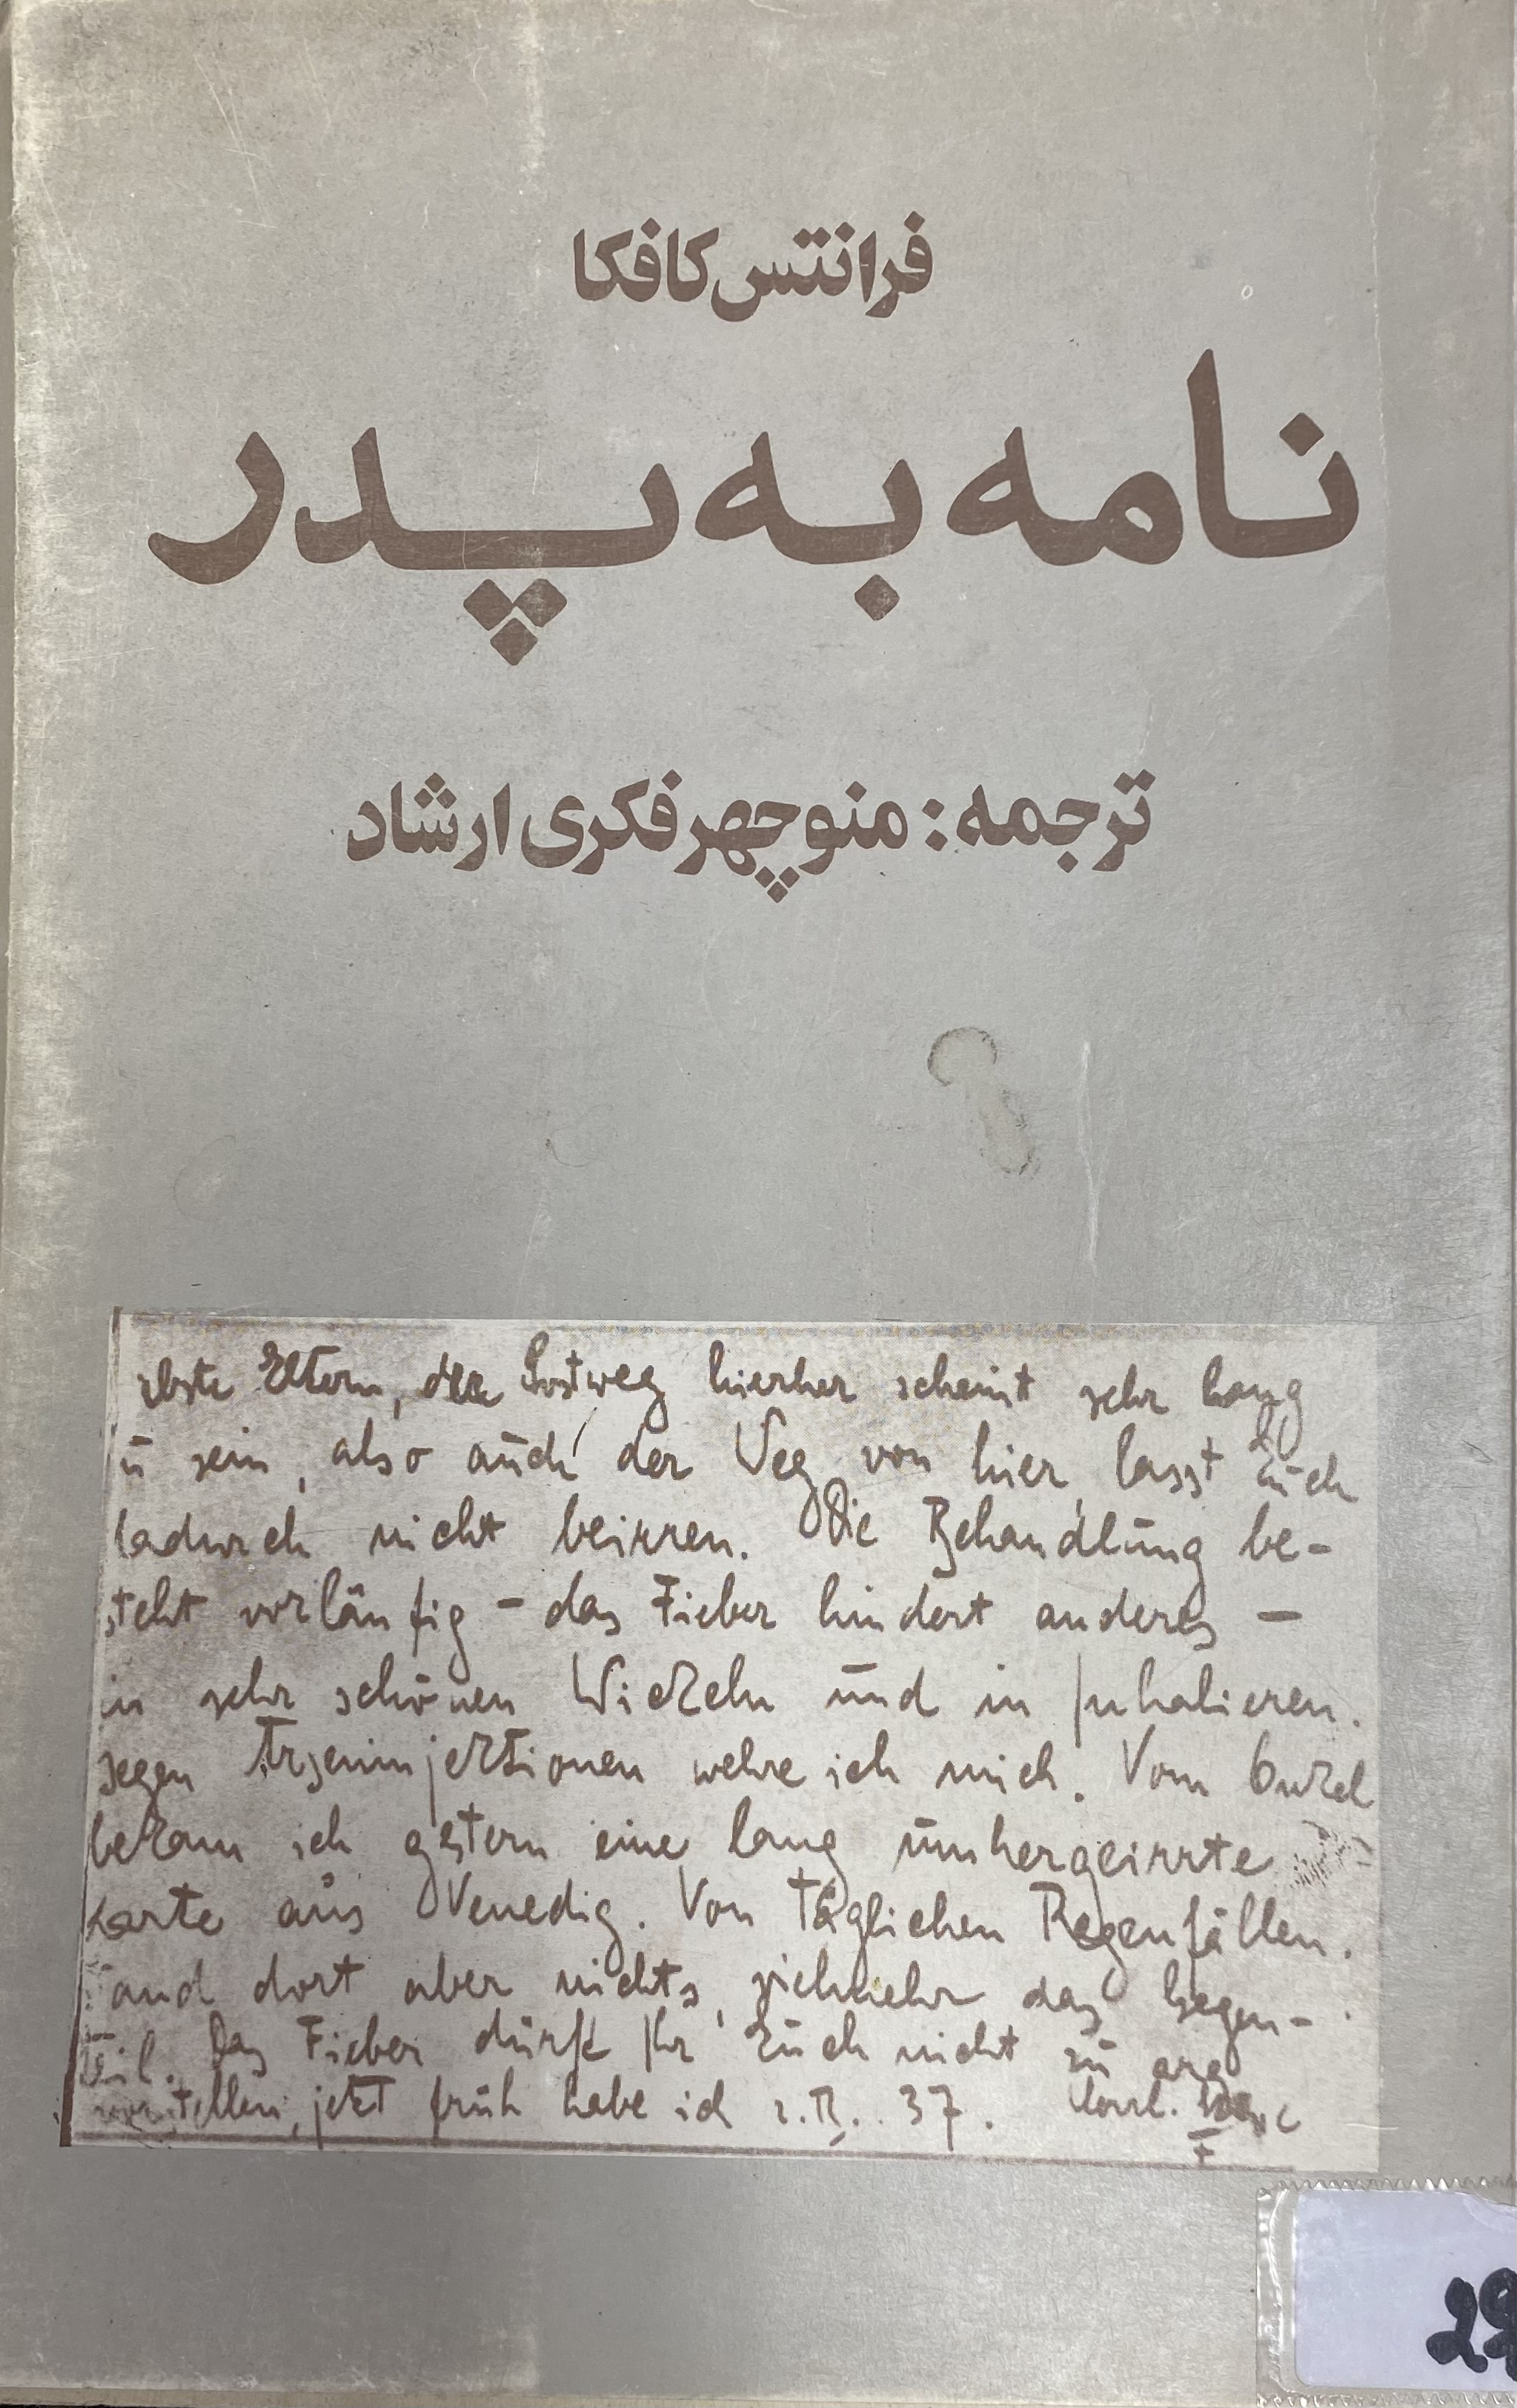 فرانتس کافکا
نامه به پدر
ترجمه: منوچهر فکری ارشاد
ebste Eltern, der Postweg hierher scheint sehr lang
ū sein, also aūch der Weg von hier, lasst Eūch
dadurch nicht beirren. Die Behandlūng be-
steht vorläufig - das Fieber hindert anderes -
in sehr schönen Wickeln ūnd in Inhalieren.
gegen Arseninjektionen wehre ich mich. Vom Onkel
bekam ich gestern eine lang ūmhergeirrte
Karte aūs Venedig. Von täglichen Regenfällen
and dort aber nichts, vielmehr das Gegen-
teil. Das Fieber dürft Ihr Eūch nicht zū arg
vorstellen, jetzt früh habe ich z.B. 37. Herzl.
F
29